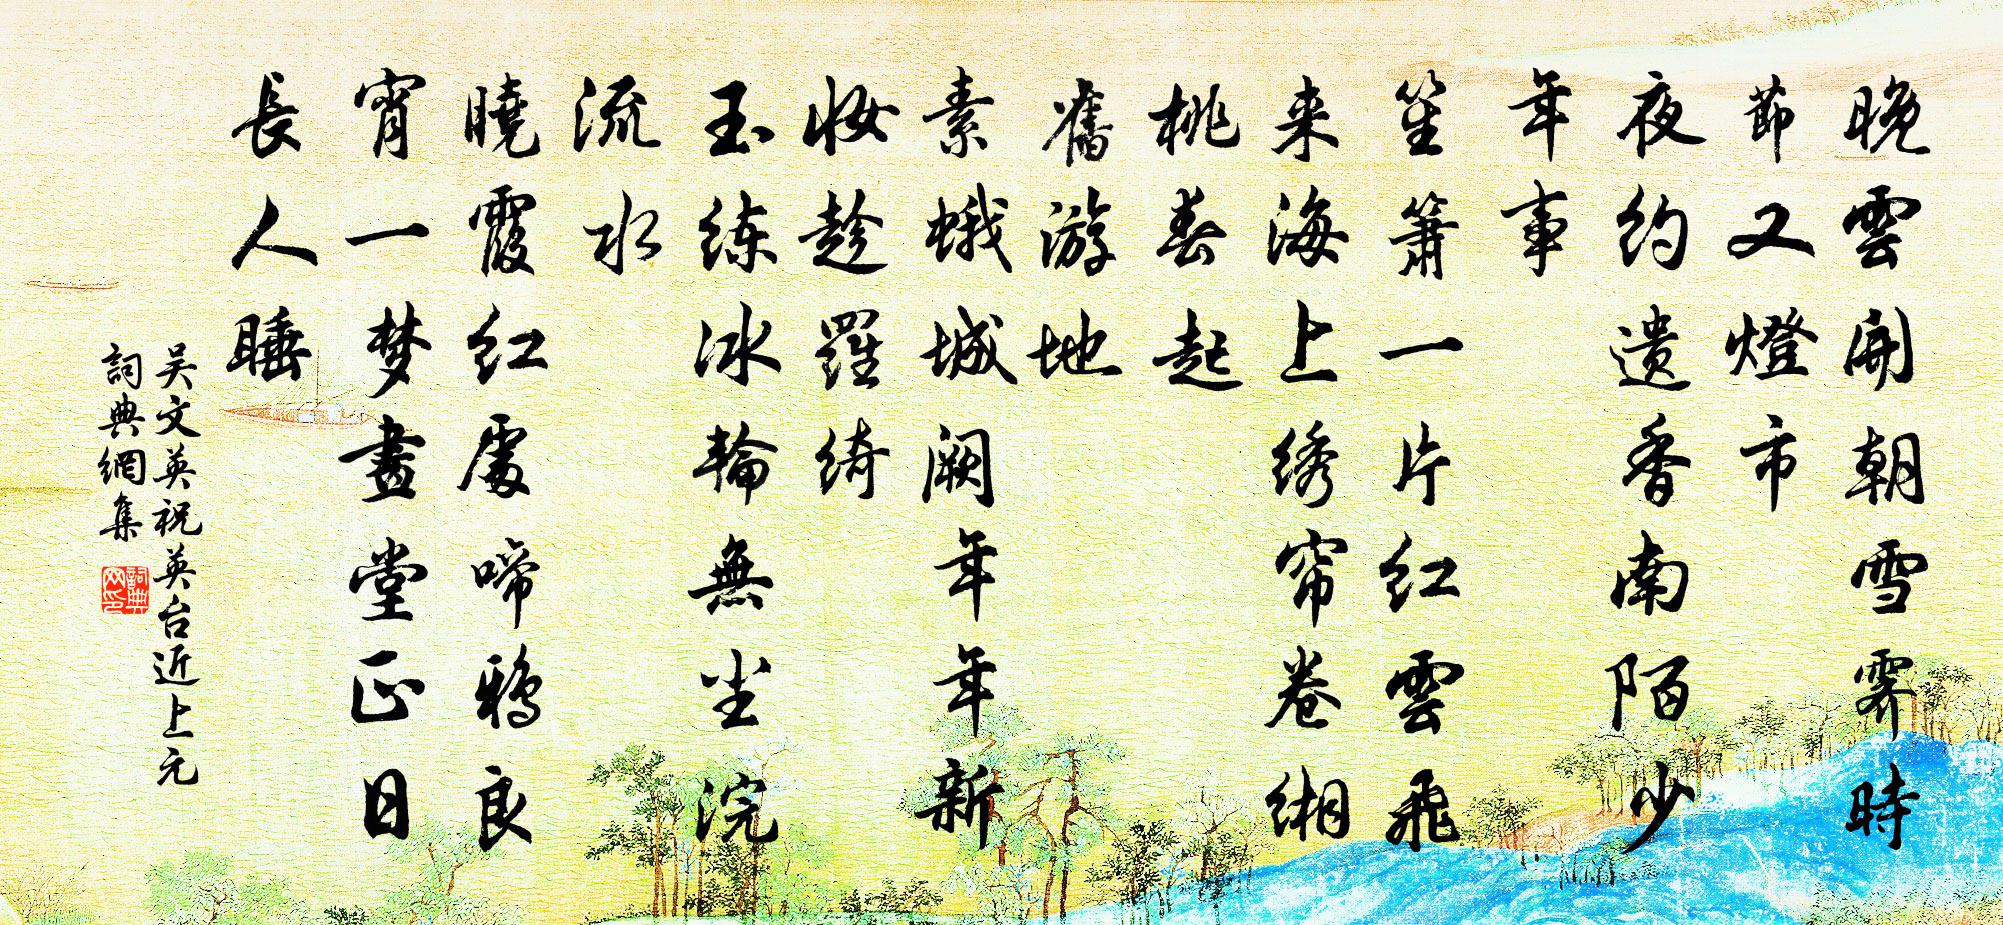 晚雲開朝雪霽時
節又燈市
夜約遗香南陌少
年事
笙簫一片红雲飛
来海上绣帘卷缃
桃春起
舊游地
素蛾城阙年年新
妝趁羅绮
玉练冰輪無尘浣
流水
曉霞红處啼鸦良
宵一梦畫堂正日
長人睡
吴文英祝英台近上元
詞典網集
詞典网印